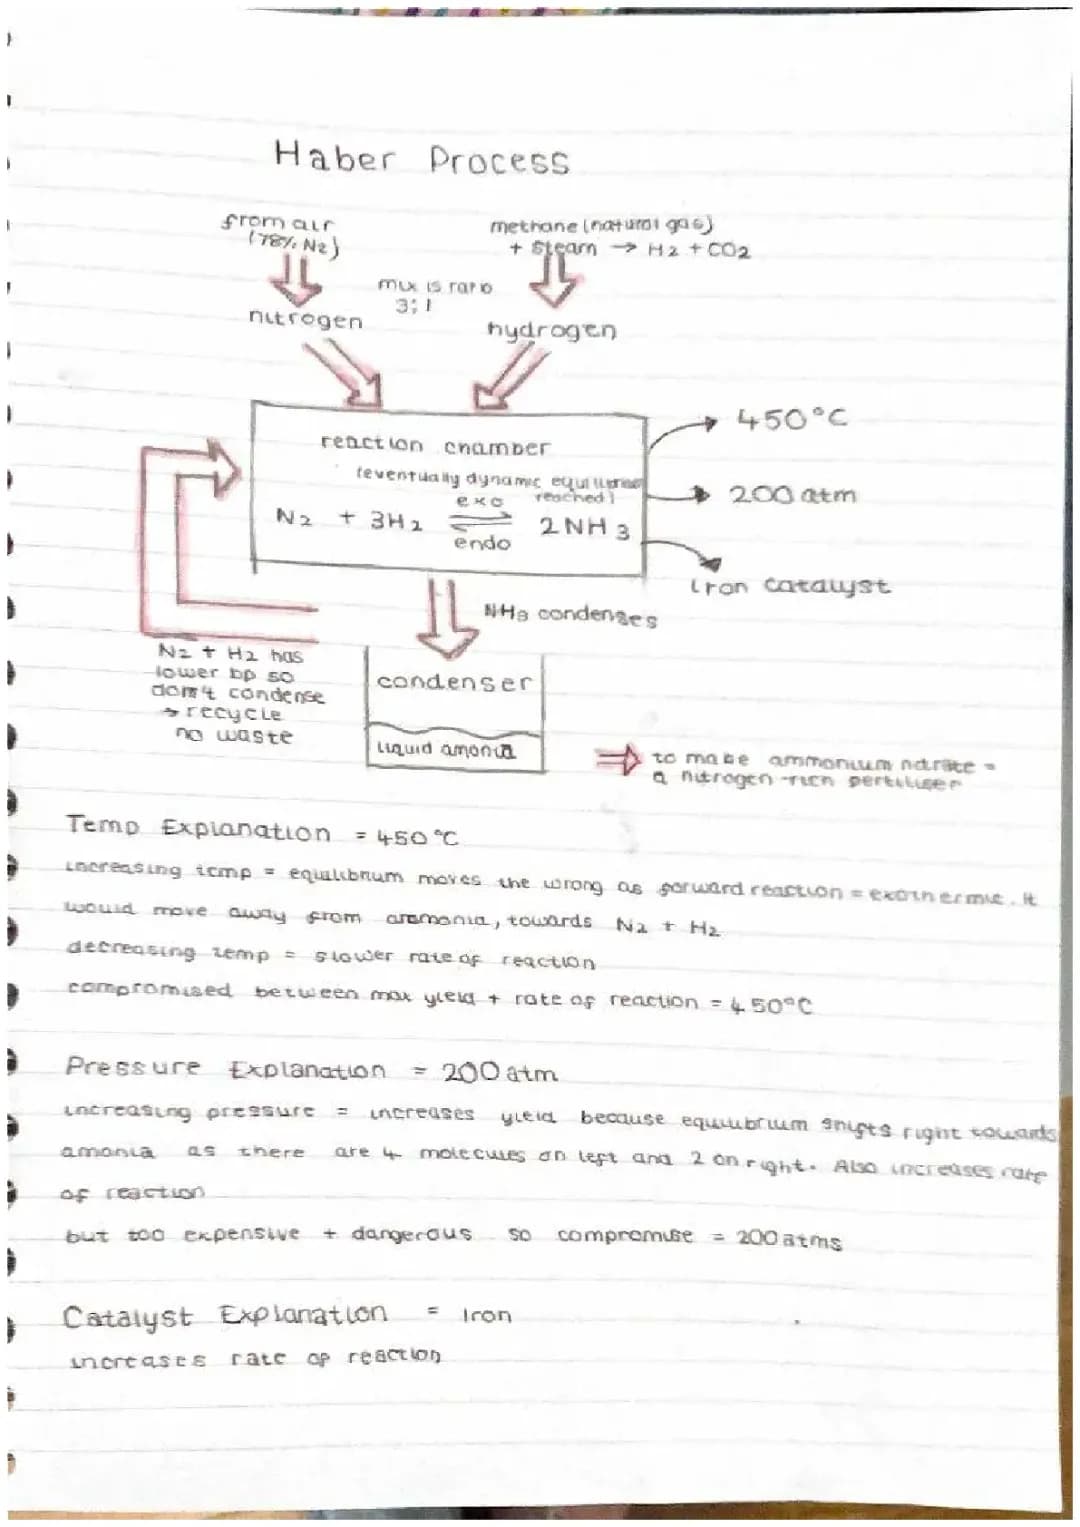 Haber Process
from air
(78% N2)
methane (natural gas)
+ steam → H2 + CO2
mix is ratio
3:1
nitrogen
hydrogen
450°C
reaction chamber
(eventually dynamic equilibrium
reached)
200 atm
exo
N2 + 3H2 ⇌ 2NH3
endo
iron catalyst
NH3 condenses
N2 + H2 has
lower bp so
don't condense
→ recycle
no waste
condenser
liquid amonia
⇒ to make ammonium nitrate =
a nitrogen-rich fertiliser
Temp Explanation = 450°C
increasing temp = equilibrium moves the wrong as forward reaction = exothermic. It
would move away from ammonia, towards N2 + H2
decreasing temp = slower rate of reaction
compromised between max yield + rate of reaction = 450°C
Pressure Explanation = 200 atm
increasing pressure = increases yield because equilibrium shifts right towards
amonia as there are 4 molecules on left and 2 on right. Also increases rate
of reaction
but too expensive + dangerous so compromise = 200 atms
Catalyst Explanation = Iron
increases rate of reaction